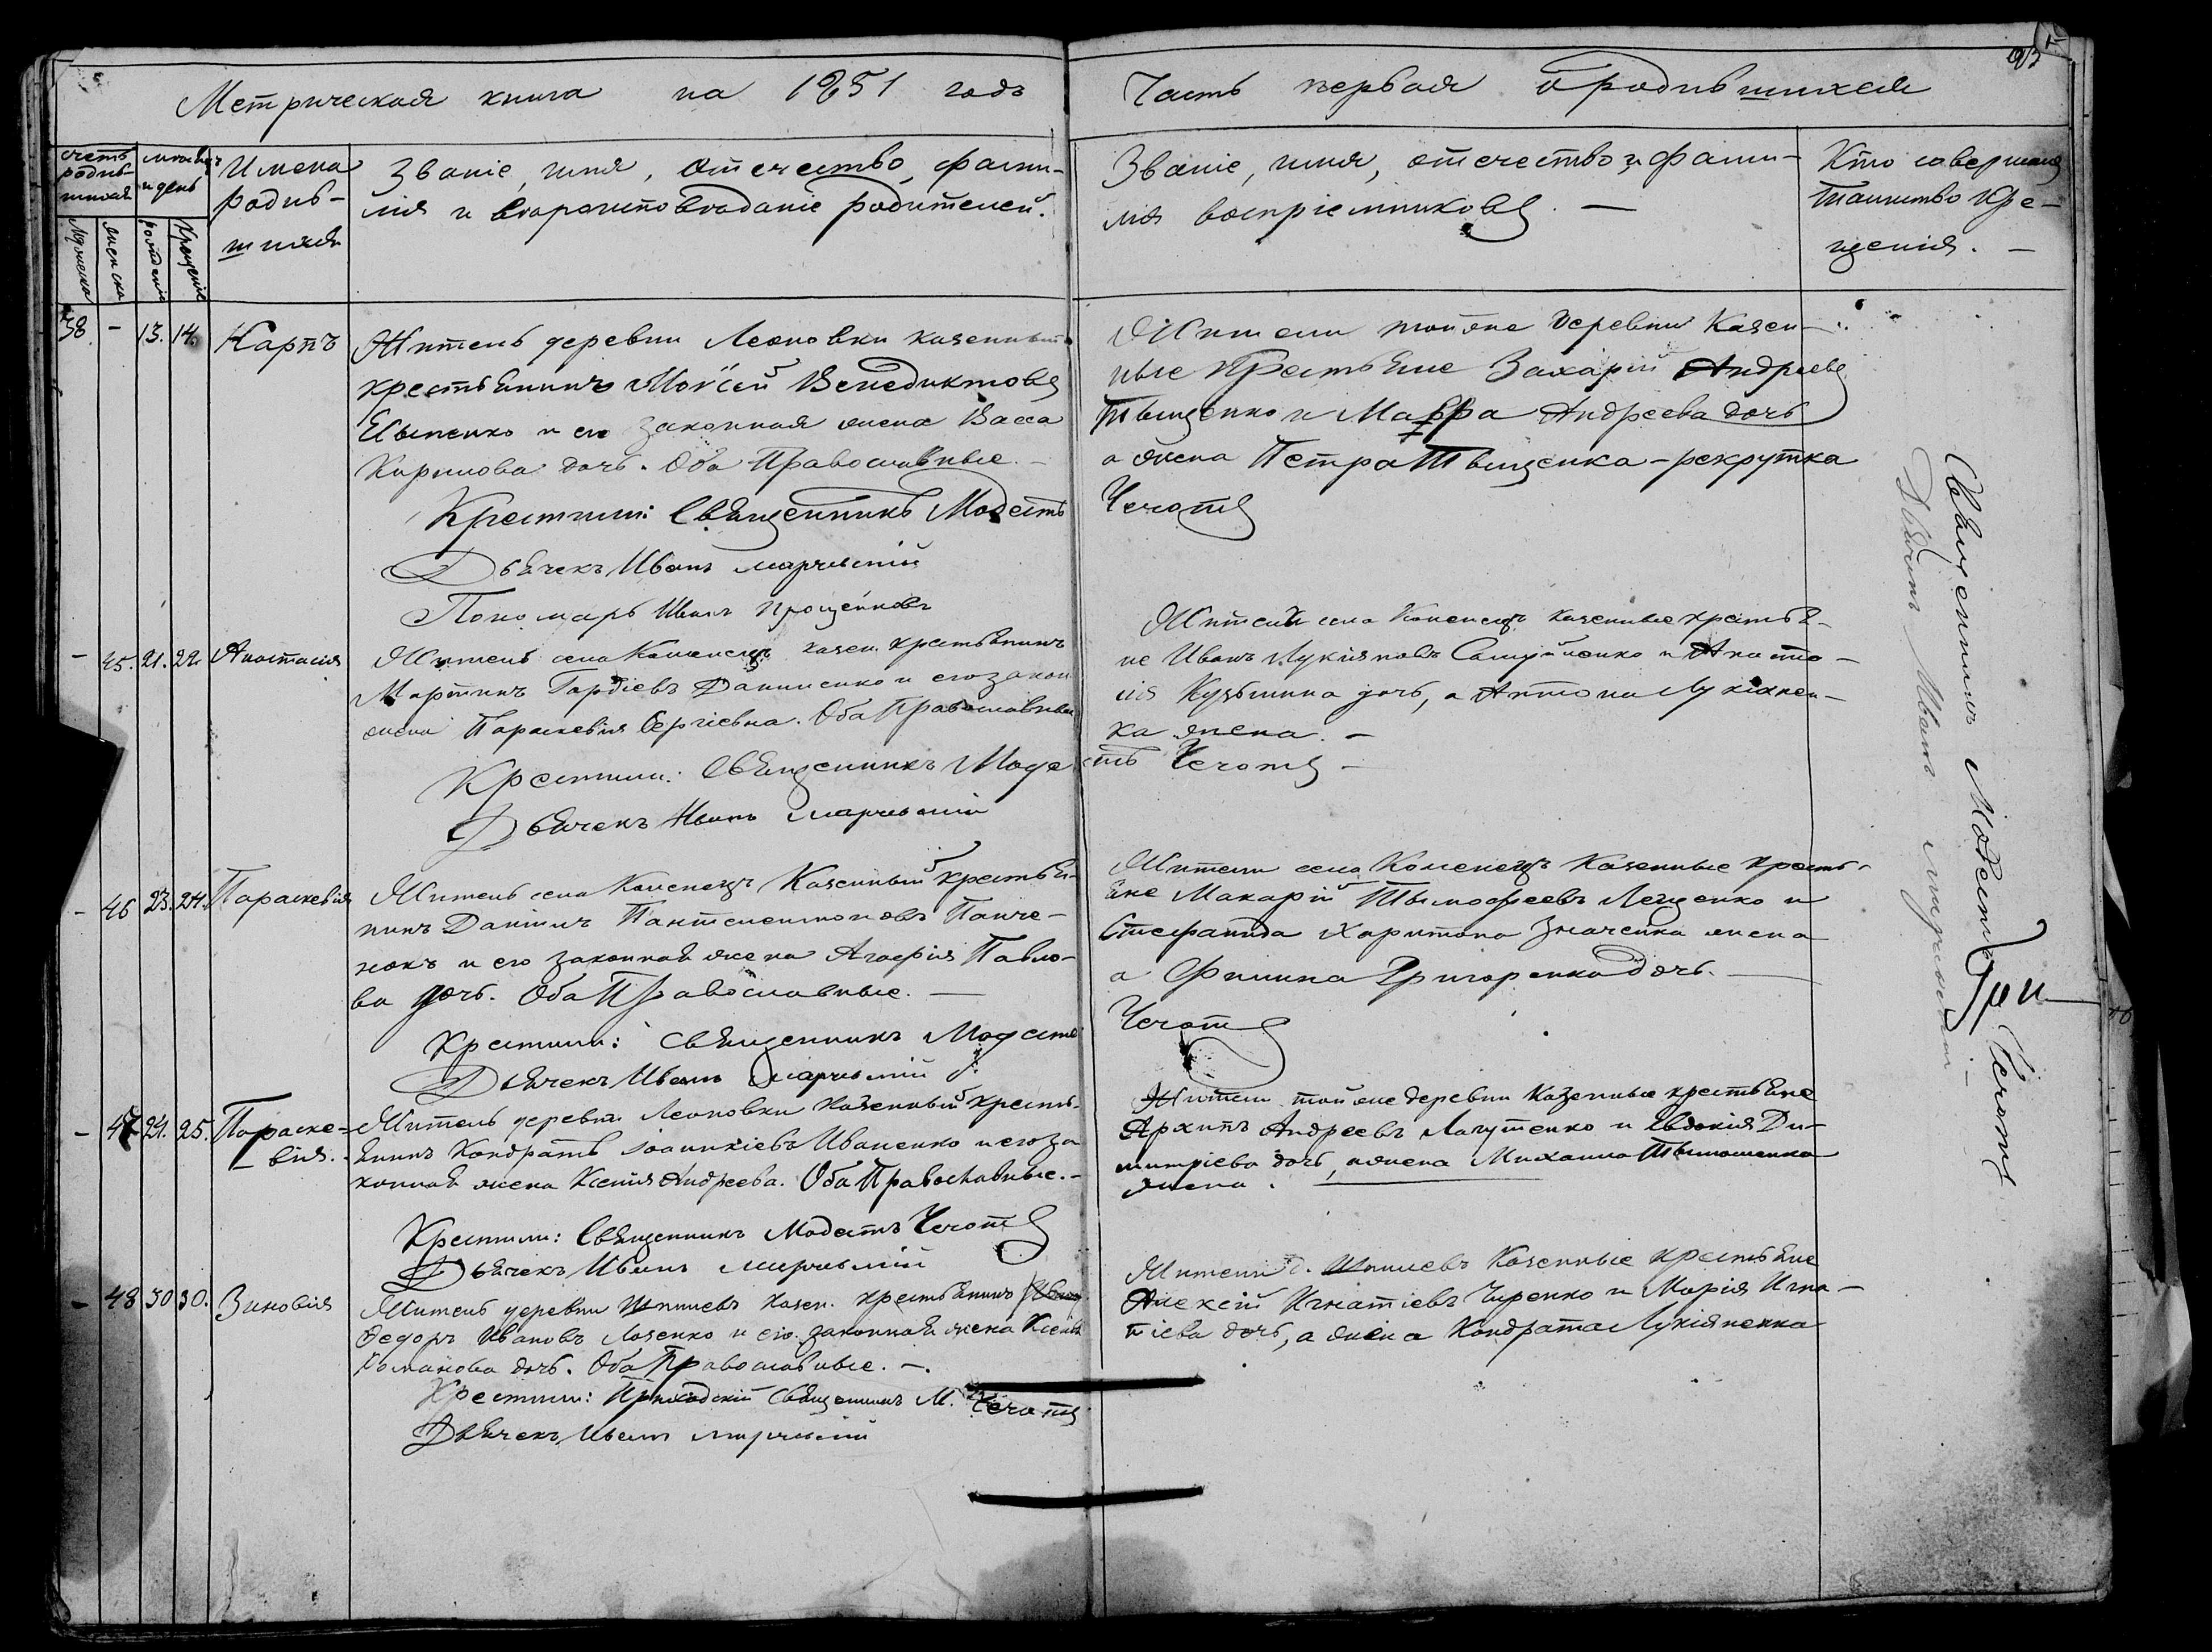 Метрическая книга на 1851 годъ
Часть первая о родившихся
счетъ родив-
шихся
мѣсяцъ
и день
Имена
родив-
шихся
Званіе, имя, отечество, фами-
лія и вѣроисповѣданіе родителей.
Званіе, имя, отечество и фами-
лія воспріемниковъ. —
Кто совершалъ
таинство кре-
щенія. —
Мужеска
женска
рожденіе
крещеніе
38. - 13. 14. Карпъ
Житель деревни Леоновки казенный
крестьянинъ Моѵсей Венедиктовъ
и его законная жена Васса
Кирилова дочь. Оба Православные. —
Крестили: Священникъ Модестъ
Дьячекъ Иванъ
Пономарь Иванъ Прощенковъ
Жители тойже деревни казен-
ные крестьяне Захарій Андреевъ
Тыщенко и Марфа Андреева дочь
а жена Петра Тыщенка - рекрутка
Чечотъ
- 45. 21. 22. Анастасія
Житель села Каменецъ казен. крестьянинъ
Мартинъ Гордіевъ Даниленко и его закон.
жена Параскевія Сергіевна. Оба Православные
Крестили: Священникъ Моде
Дьячекъ Иванъ
Жители села Каменецъ казенные крестья-
не Иванъ Лукіяновъ Самуйленко и Анаста-
сія Кузьмина дочь, а Антона Лукіянен-
ка жена. —
стъ Чечотъ —
- 46 23. 24. Параскевія
Житель села Каменецъ Казенный крестья-
нинъ Даніилъ Пантелеимоновъ Панче-
нокъ и его законная жена Агафія Павло-
ва дочь. Оба Православные. —
Крестили: Священникъ Модестъ
Дьячекъ Иванъ
Жители села Каменецъ Казенные кресть-
яне Макарій Тымофеевъ Лещенко и
Стефанида Харитона Значенка жена
а Филипа Григоренка дочь. —
Чечотъ
- 47 24. 25. Параске-
вія.
Житель деревни Леоновки Казенный кресть-
янинъ Кондратъ Іоаникіевъ Иваненко и его за
конная жена Ксенія Андреева. Оба Православные. -
Крестили: Священникъ Модестъ Чечотъ
Дьячекъ Иванъ
Жители тойже деревни Казенные крестьяне
Архипъ Андреевъ Лагутенко и Евдокія Ди-
митріева дочь, а жена Михаила Тымошенка
жена.
- 48 30 30. Зиновія
Житель деревни казен. крестьянинъ
Федоръ Ивановъ Лозенко и его законная жена Ксенія
Романова дочь. Оба Православные. —.
Крестили: Приходскій Священникъ М. Чечотъ
Дьячекъ Иванъ
Жители д. Казенные крестьяне
Алексій Игнатіевъ Чиренко и Марія Игна-
тіева дочь, а жена Кондрата Лукіяненка
Священникъ Модестъ Чечотъ
Дьячекъ Иванъ